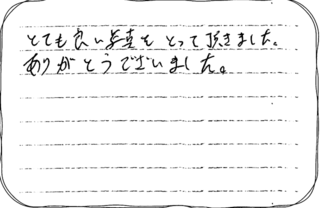 とても良い写真をとって頂きました。
ありがとうございました。